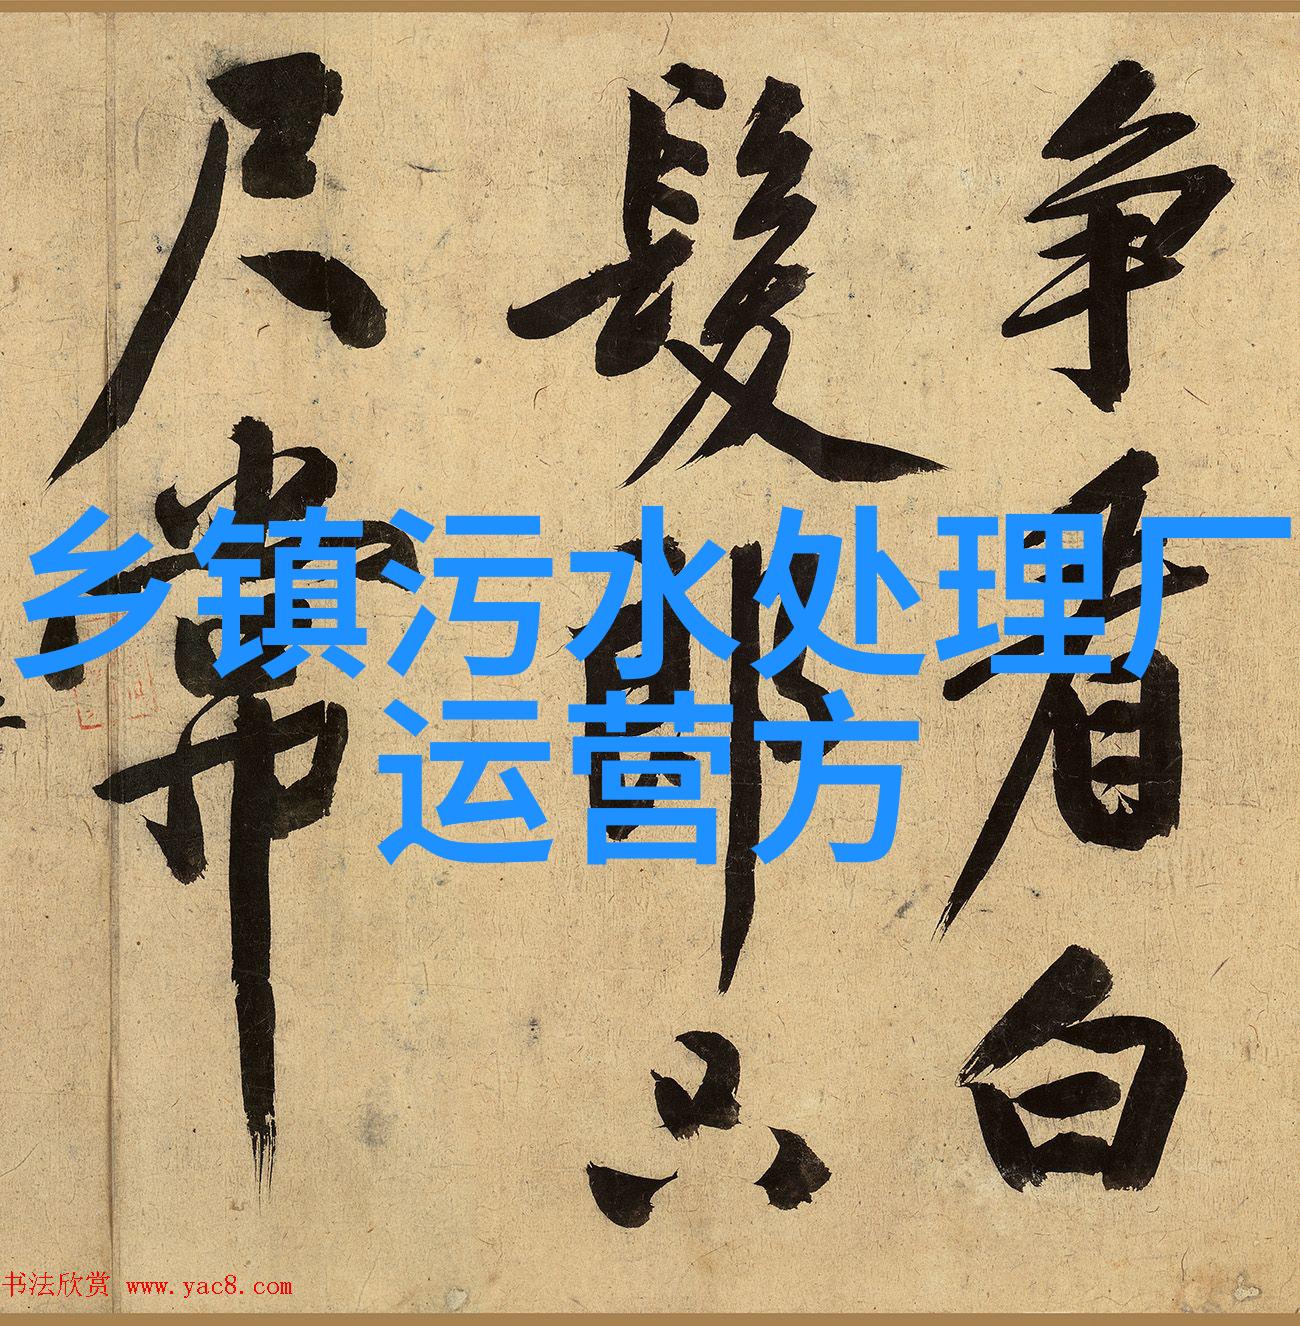 争看白
髮郎只
尺常
乡镇污水处理厂
运营方
书法欣赏 www.yac8.com